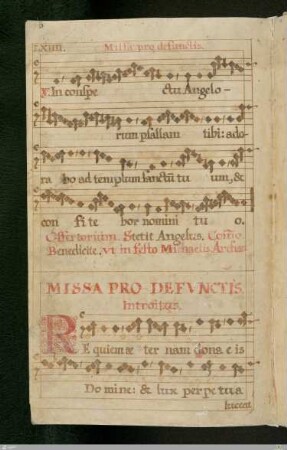 LXIIII. Missa pro defunctis.
V. In conspe ctu Angelo-
rum psallam tibi: ado-
ra bo ad templum sanctū tu um, &
con fi te bor nomini tu o.
Offertorium. Stetit Angelus. Comō.
Benedicite. Vt in festo Michaelis Archā
MISSA PRO DEFVNCTIS.
Introitus.
REquiem æ ter nam dona e is
Domine: & lux perpetua
luceat